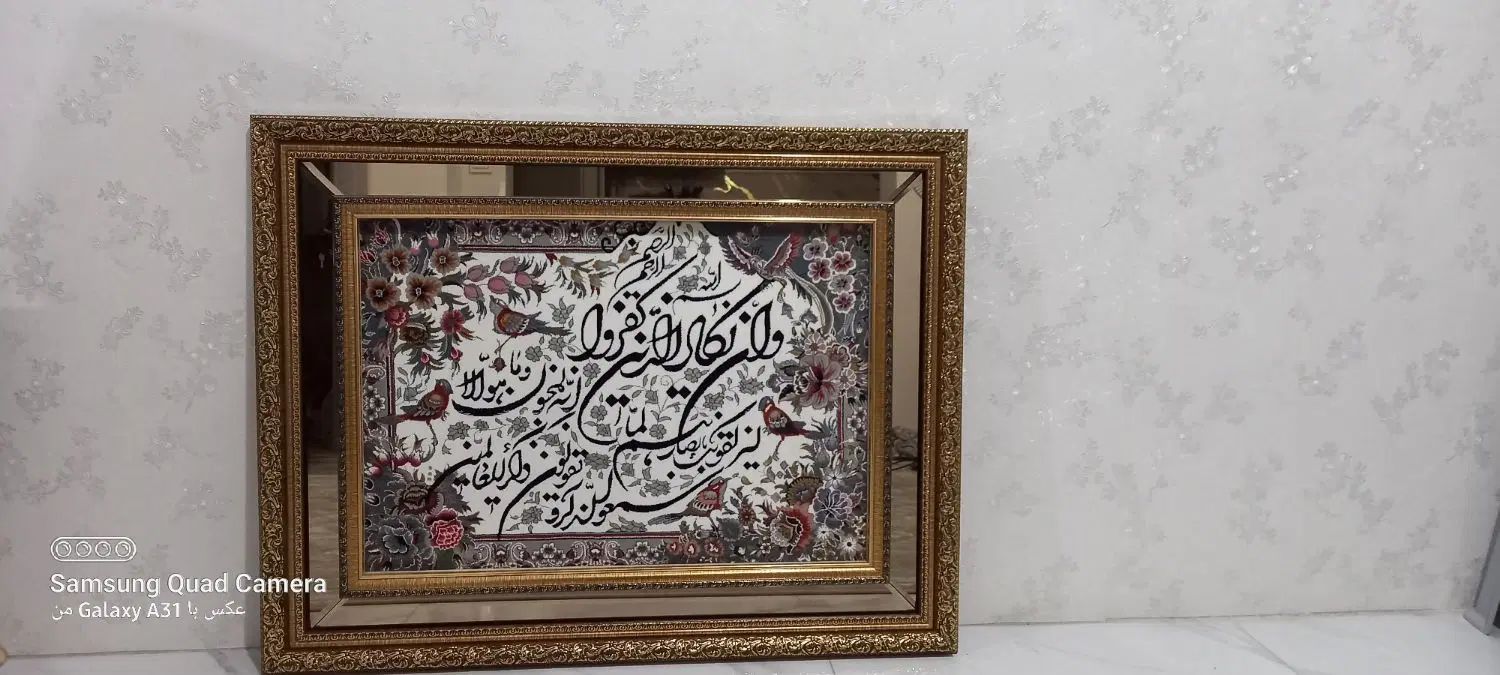 بسم الله الرحمن الرحیم
وإن یکاد الذین کفروا
لیزلقونک بأبصارهم لما
سمعوا الذکر و یقولون
إنه لمجنون وما هو إلا
ذکر للعالمین
Samsung Quad Camera
عکس با Galaxy A31 من